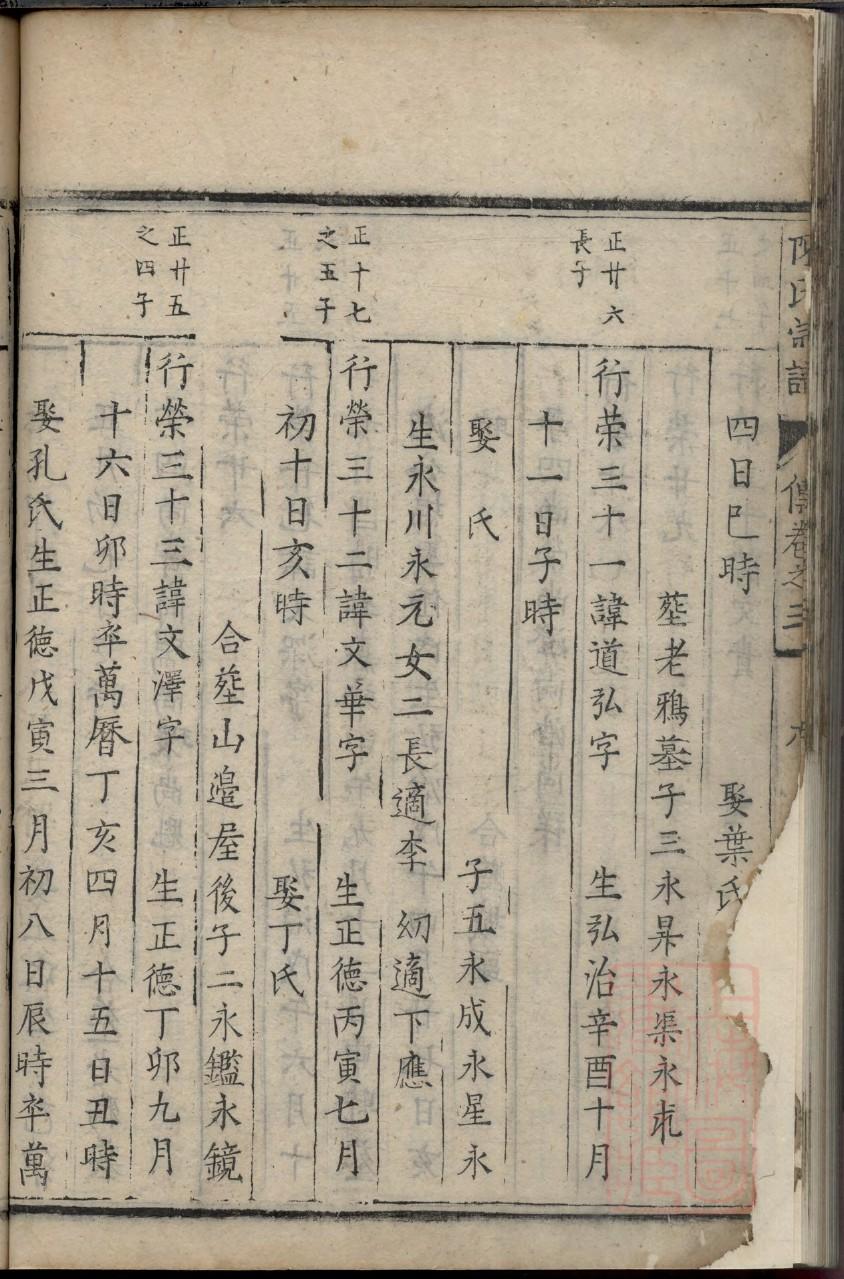 陳氏宗譜 傳卷之三 九
四日巳時 娶葉氏
塟老鴉墓子三永昇永渠永
正廿六
長子
行荣三十一諱道弘字 生弘治辛酉十月
十一日子時
娶 氏 子五永成永星永
生永川永元女二長適李 幼適下應
正十七
之五子
行榮三十二諱文華字 生正德丙寅七月
初十日亥時 娶丁氏
合塟山邉屋後子二永鑑永鏡
正廿五
之四子
行榮三十三諱文澤字 生正德丁卯九月
十六日卯時卒萬曆丁亥四月十五日丑時
娶孔氏生正德戊寅三月初八日辰時卒萬